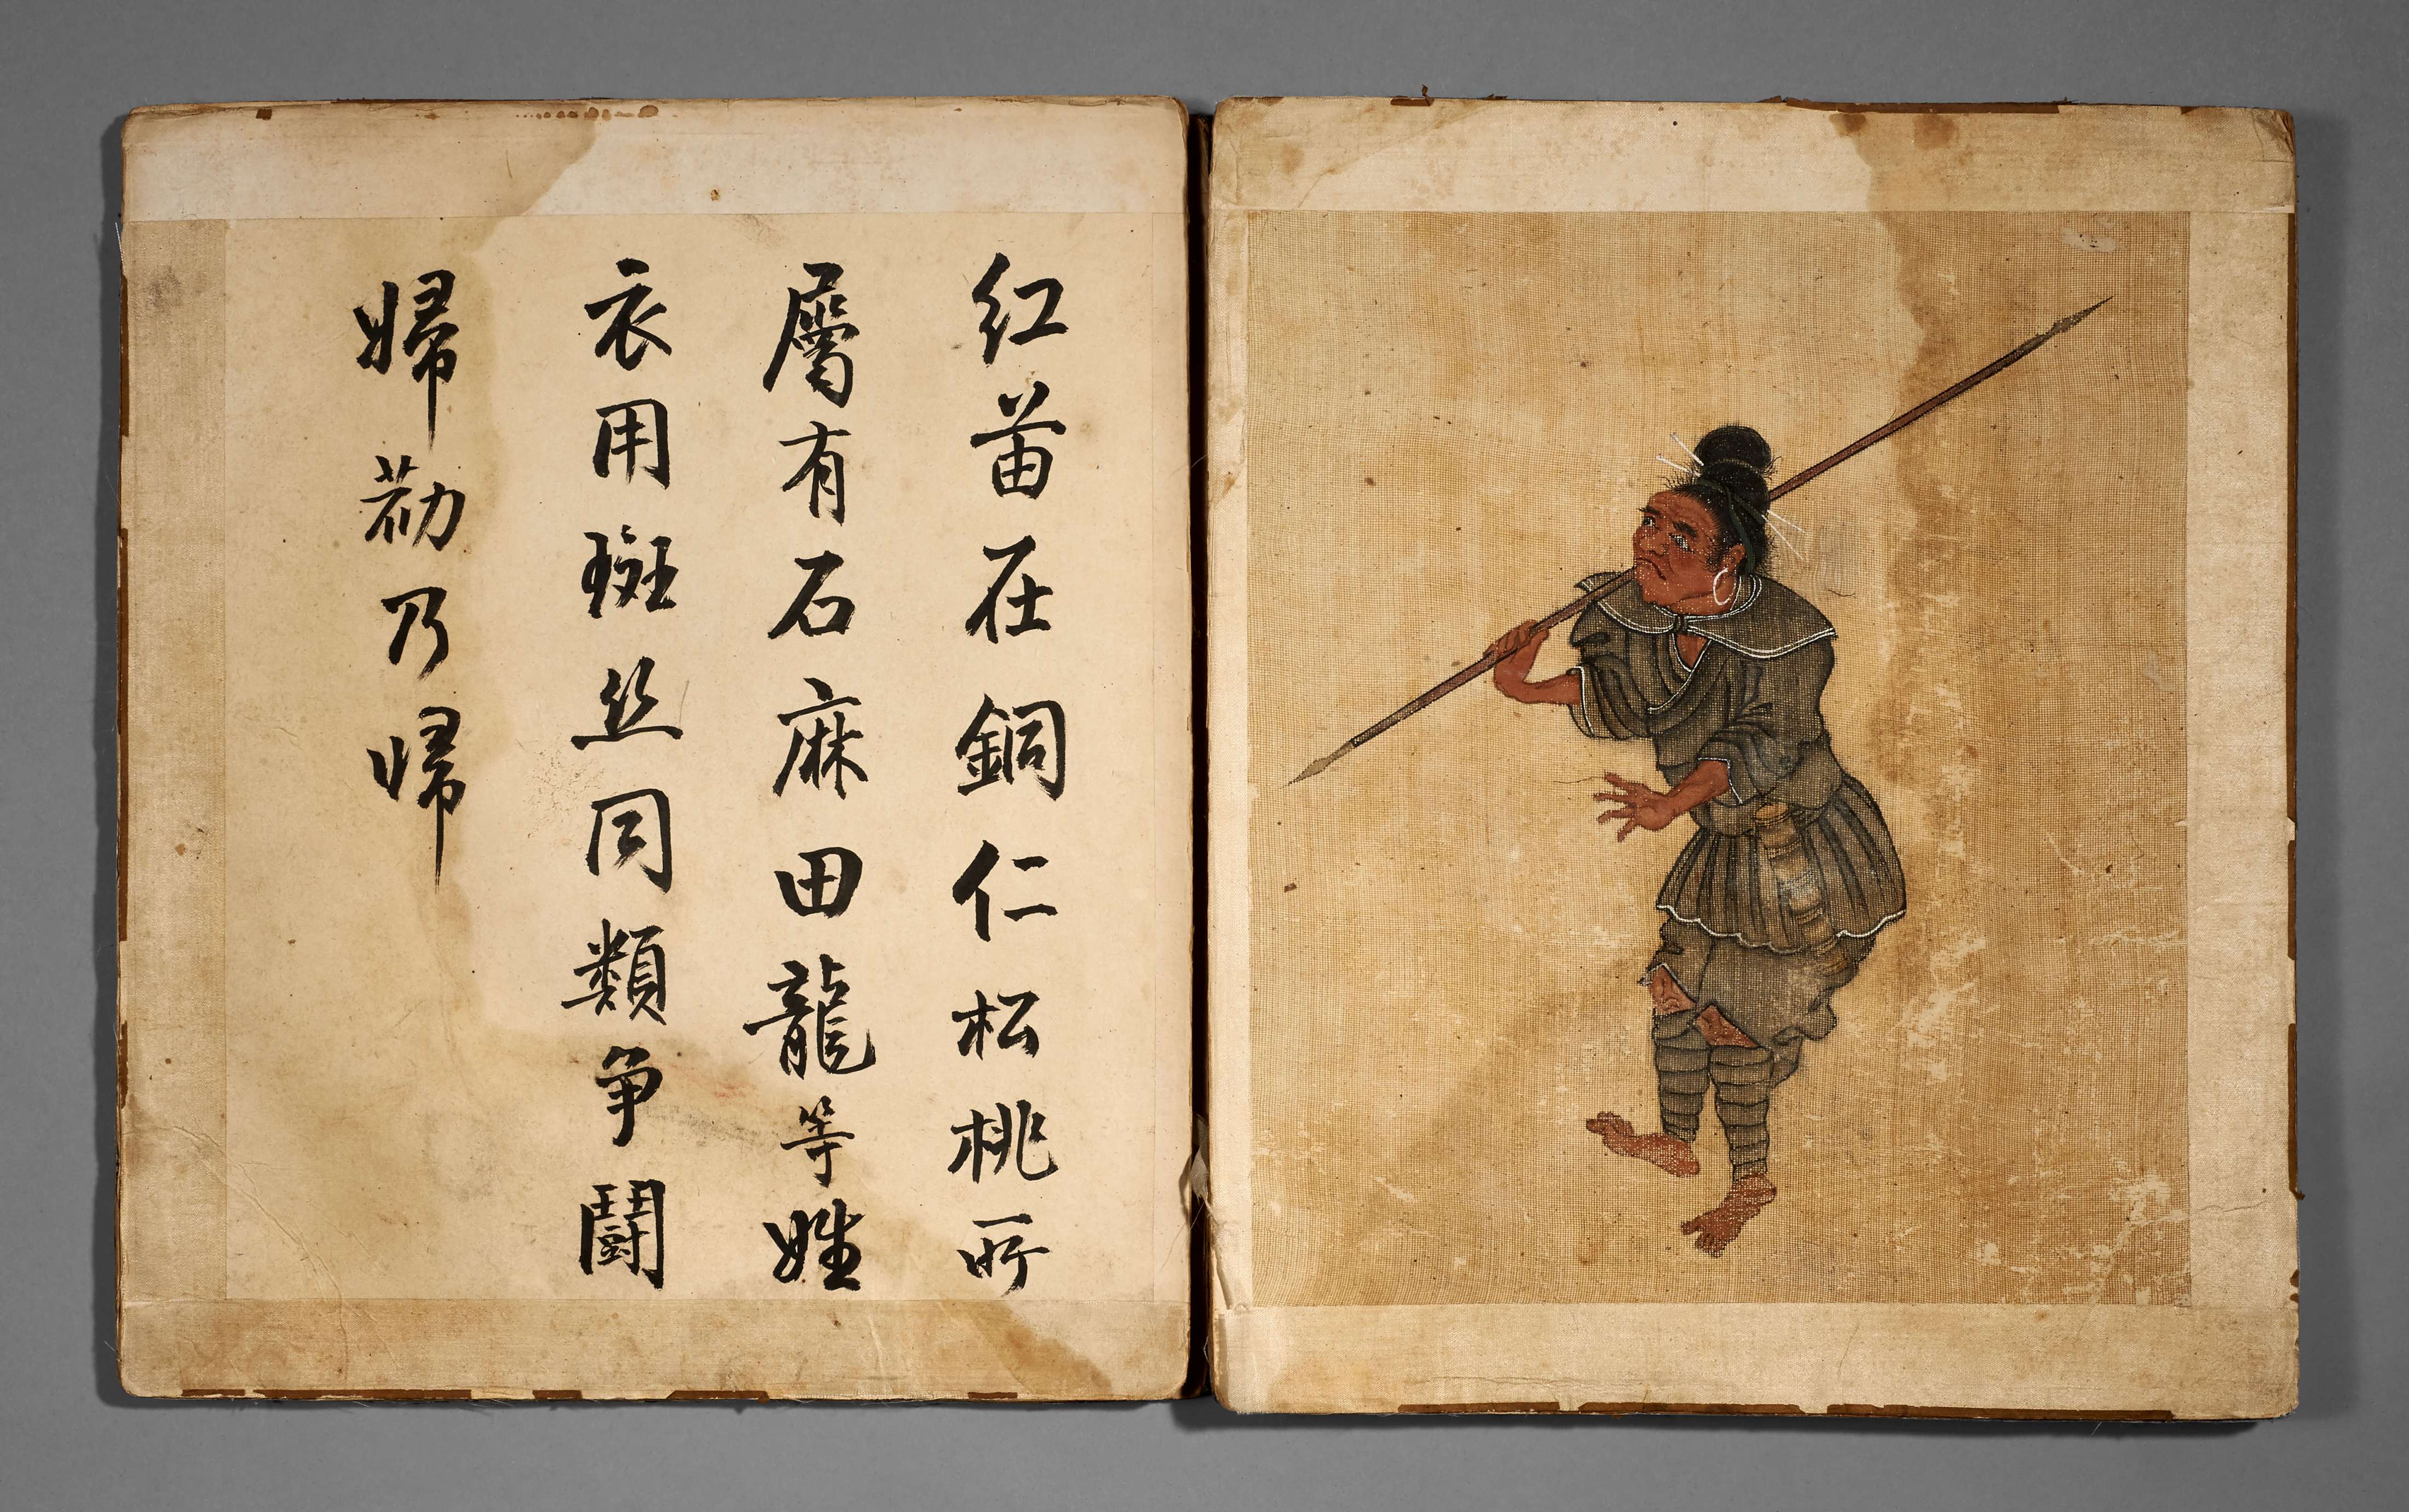 红苗在銅仁松桃所
屬有石麻田龍等姓
衣用斑丝同類争鬪
婦勸乃歸